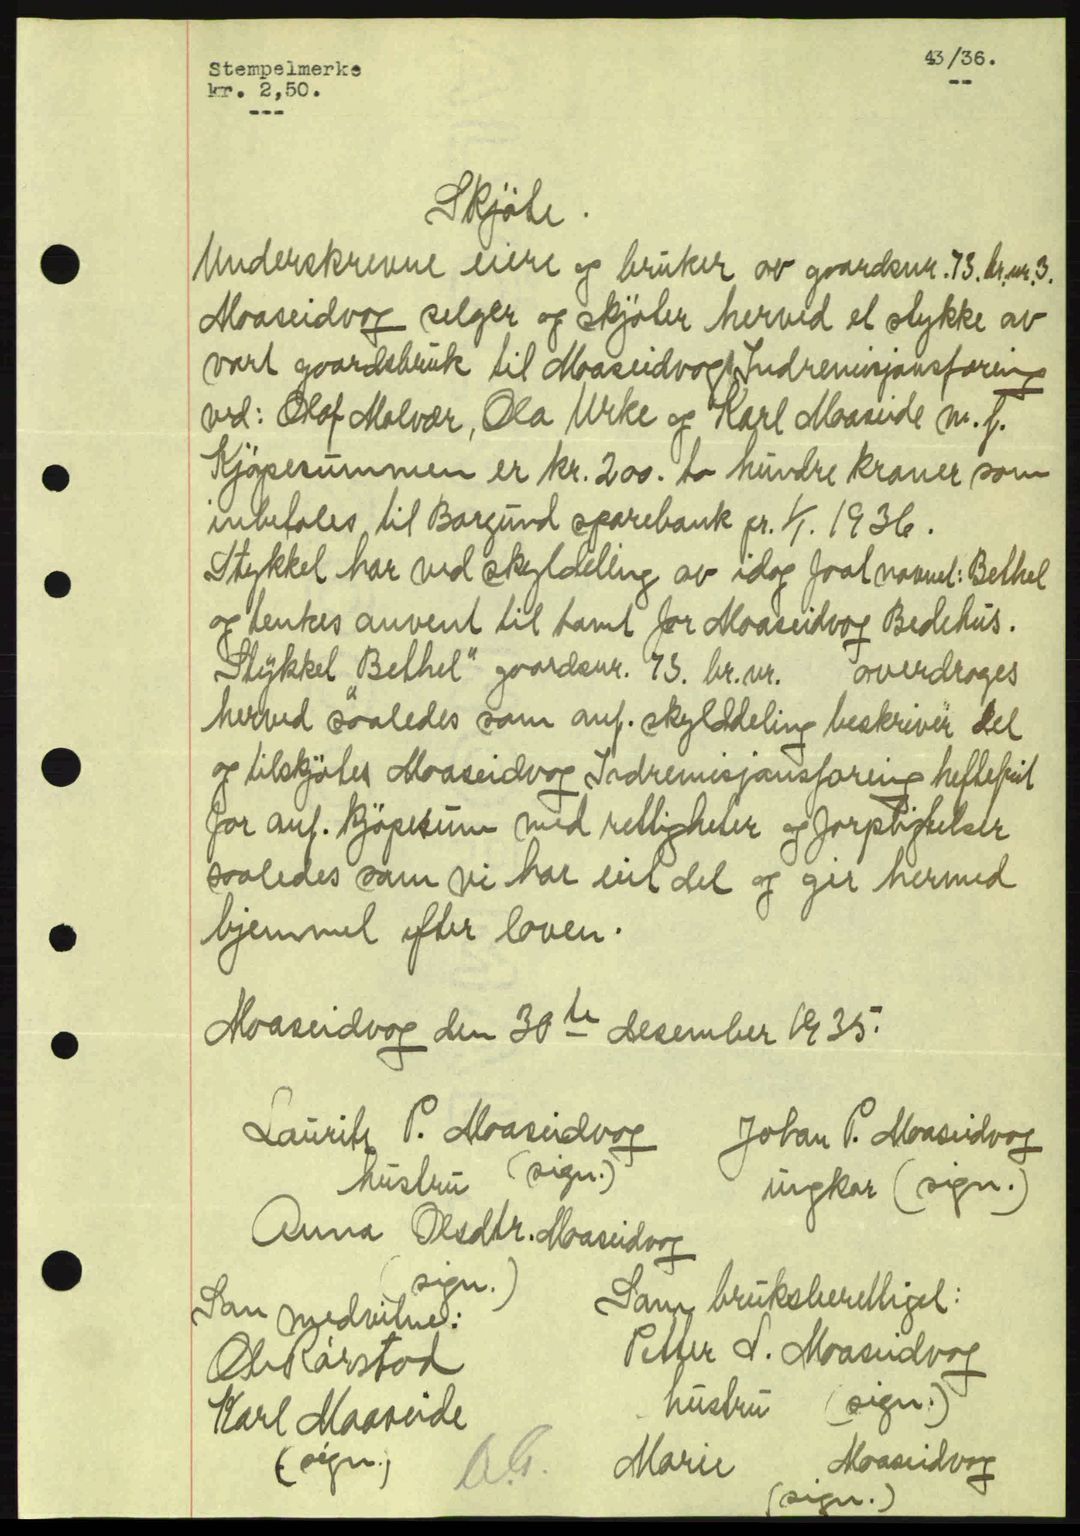 Stempelmerke
kr. 2,50.
---
43/36.
--
Skjøte.
Underskrevne eiere og bruker av gaardsnr. 73. br.nr. 3.
Maaseidvag selger og skjøter herved et stykke av
vart gaardsbruk til Maaseidvag Indremisjonsforening
ved: Olaf Malvær, Ola Urke og Karl Maaseide m. fl.
Kjøpesummen er kr. 200. to hundre kroner som
inbetales til Borgund sparebank pr. 1/1. 1936.
Stykket har ved skylddeling av idag faat navnet: Bethel
og tenkes anvent til tomt for Maaseidvag Bedehus.
Stykket "Bethel" gaardsnr. 73. br.nr. overdrages
herved saaledes som anf. skylddeling beskriver det
og tilskjøtes Maaseidvag Indremisjonsforening heftefrit
for anf. kjøpesum med rettigheter og forpligtelser
saaledes som vi har eiet det og gir hermed
hjemmel efter loven.
Maaseidvag den 30te desember 1935.
Laurits P. Maaseidvag
hustru (sign.)
Johan P. Maaseidvag
ungkar (sign.)
Anna Olsdtr. Maaseidvag
(sign.)
Som medvitne:
Ole Rørstad
Karl Maaseide
(sign.)
Som bruksberettiget:
Petter L. Maaseidvag
hustru (sign.)
Marie Maaseidvag
(sign.)